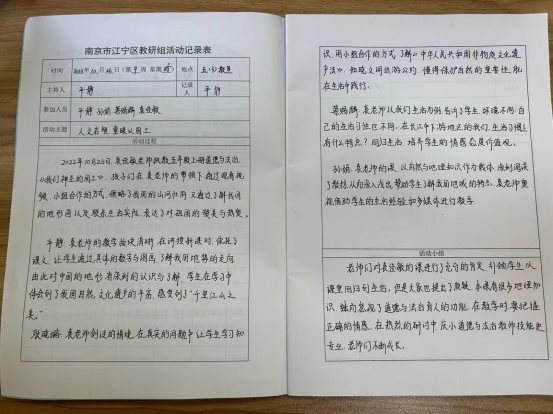 南京市江宁区教研组活动记录表
时间 2022年10月26日(第9周 星期三) 地点 五(3)教室
主持人 平静 记录人 平静
参加人员 平静 孙娟 袁佳敏
活动主题 人文君想 重眼认国工
活动过程
2022年10月26日,袁佳敏老师执教五年级上册道德与法治
《我们神圣的国土》。孩子们在袁老师的带领下,通过观看视
频、小组合作的方式,领略了我国的山河壮阔,又通过了解我国
的地形图以及联系生活实际,表达了对祖国的赞美与热爱。
平静:袁老师的教学板块清晰,在讲授新课时,依托了
课文,让学生通过具体的数字与图画,了解我国地势的走向,
由此对中国的地形有深刻的认识与了解。学生在学习中
体会到了我国自然,文化遗产的丰富,感受到了“千里江山之
美。”
袁老师创设的情境,在真实的问题中让学生学习知
识,用小组合作的方式了解《中华人民共和国非物质文化遗
产法》,知晓文明出游公约,懂得保护自然的重要性,能
在生活中践行。
袁老师以我们生活为例,告诉了学生,环境不同,自
己的生活习性也不同,在长江中下游地区的我们,生活习惯上
有什么特点?回归生活,培养学生的情感态度价值观。
孙娟:袁老师的课,以自然与地理知识作为载体,
了教材,从而深入浅出,帮助学生了解我国地域的特点,袁老师重
视借助学生的生活经验和多媒体进行教学。
活动小结
老师们对袁佳敏的课进行了充分的肯定,引领学生从
课堂回归到生活。但是大家也提出了质疑,本课有很多地理知
识,独而忽视了道德与法治育人的功能。在教学时,要把握
正确的情感。在热烈的研讨中,庆小道德与法治教师技能更
专业,老师们不断成长。